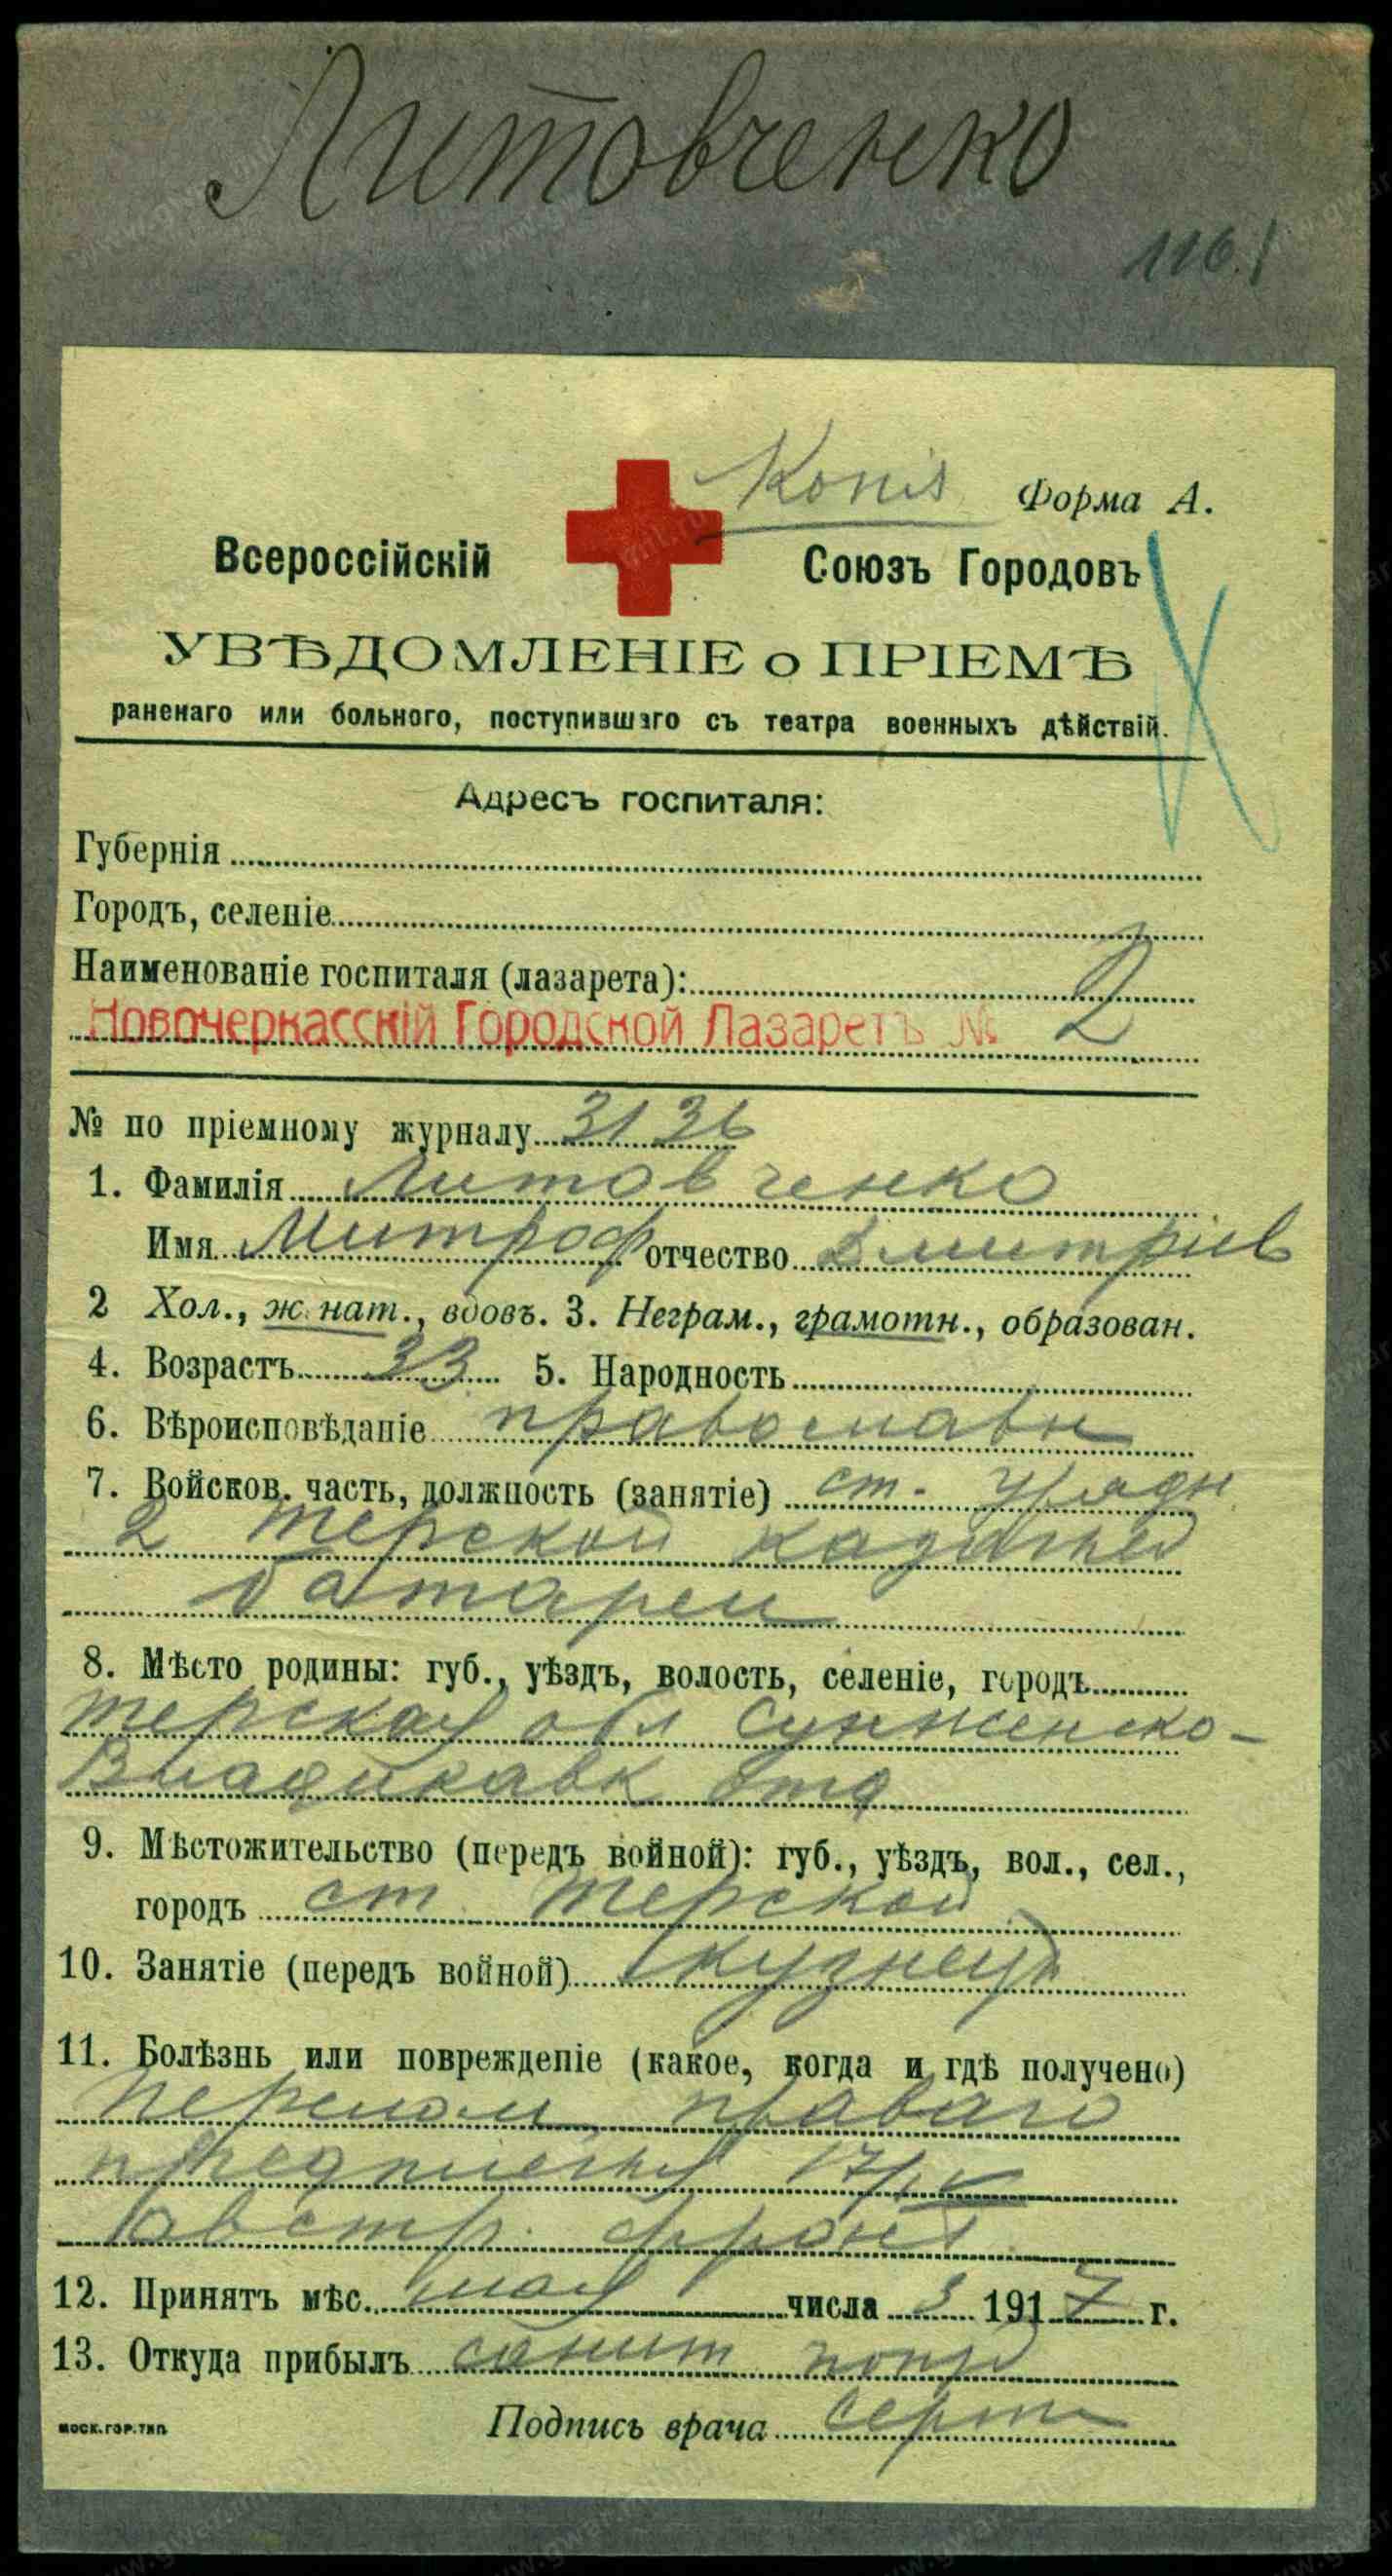 Литовченко
116.
Копія Форма А.
Всероссійскій Союзъ Городовъ
УВѢДОМЛЕНІЕ о ПРІЕМѢ
раненаго или больного, поступившаго съ театра военныхъ дѣйствій.
Адресъ госпиталя:
Губернія
Городъ, селеніе
Наименованіе госпиталя (лазарета):
Новочеркасскій Городской Лазаретъ № 2
№ по пріемному журналу 3136
1. Фамилія Литовченко
Имя Митроф отчество Дмитріев
2 Хол., женат., вдовъ. 3. Неграм., грамотн., образован.
4. Возрастъ 33 5. Народность
6. Вѣроисповѣданіе православн
7. Войсков. часть, должность (занятіе) ст. урядн
2 Терской казачьей
батареи
8. Мѣсто родины: губ., уѣздъ, волость, селеніе, городъ
Терская обл Сунженско-
Владикавк отд
9. Мѣстожительство (передъ войной): губ., уѣздъ, вол., сел.,
городъ ст Терской
10. Занятіе (передъ войной) кузнецъ
11. Болѣзнь или поврежденіе (какое, когда и гдѣ получено)
перелом праваго
предплечья 17/IV
австр. фронт
12. Принятъ мѣс. мая числа 3 1917 г.
13. Откуда прибылъ санит поезд
МОСК.ГОР.ТИП.
Подпись врача